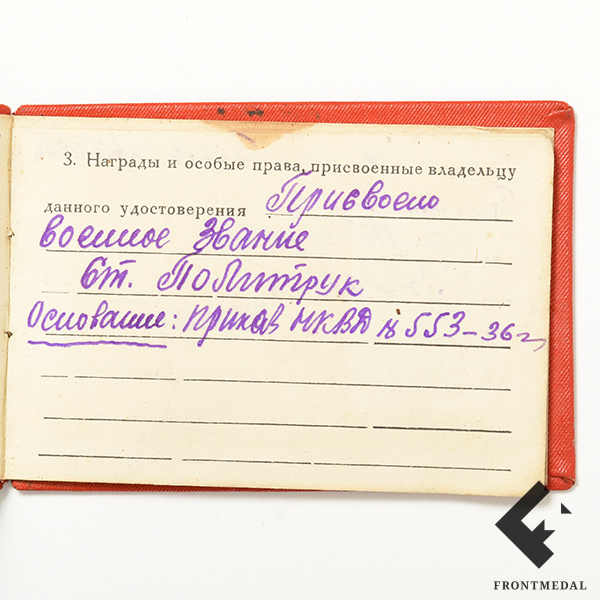 3. Награды и особые права, присвоенные владельцу
данного удостоверения Присвоено
военное звание
Ст. Политрук
Основание: приказ НКВД № 553-36г.
FRONTMEDAL